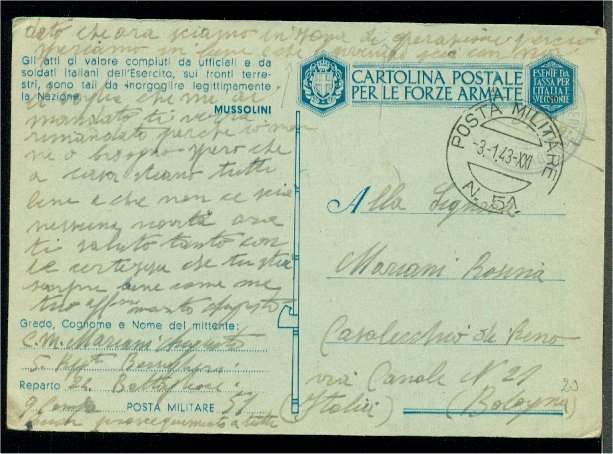 dato che ora siamo in zona di operazione
Gli atti di valore compiuti da ufficiali e da
soldati italiani dell'Esercito, sui fronti terre-
stri, sono tali da inorgoglire legittimamente
la Nazione.
MUSSOLINI
che me ai
mandato ti verrà
rimandato perche io non
ne o bisogno spero che
a casa siano tutti
bene e che non ce sia
nessuna novità ora
ti saluto tanto con
la certezza che tu stia
sempre bene come me
tuo marito Augusto
Grado, Cognome e Nome del mittente:
C.M. Mariani Augusto
5. Regt. Bersaglieri
Reparto 22 Battaglione
POSTA MILITARE 51
a tutti
CARTOLINA POSTALE
PER LE FORZE ARMATE
ESENTE DA
TASSA PER
L'ITALIA E
VVERSIONE
POSTA MILITARE
-3.-1.43-XXI
N. 51.
Alla Signora
Mariani Rosina
Casalecchio di Reno
via Canale N 21
(Italia) (Bologna)